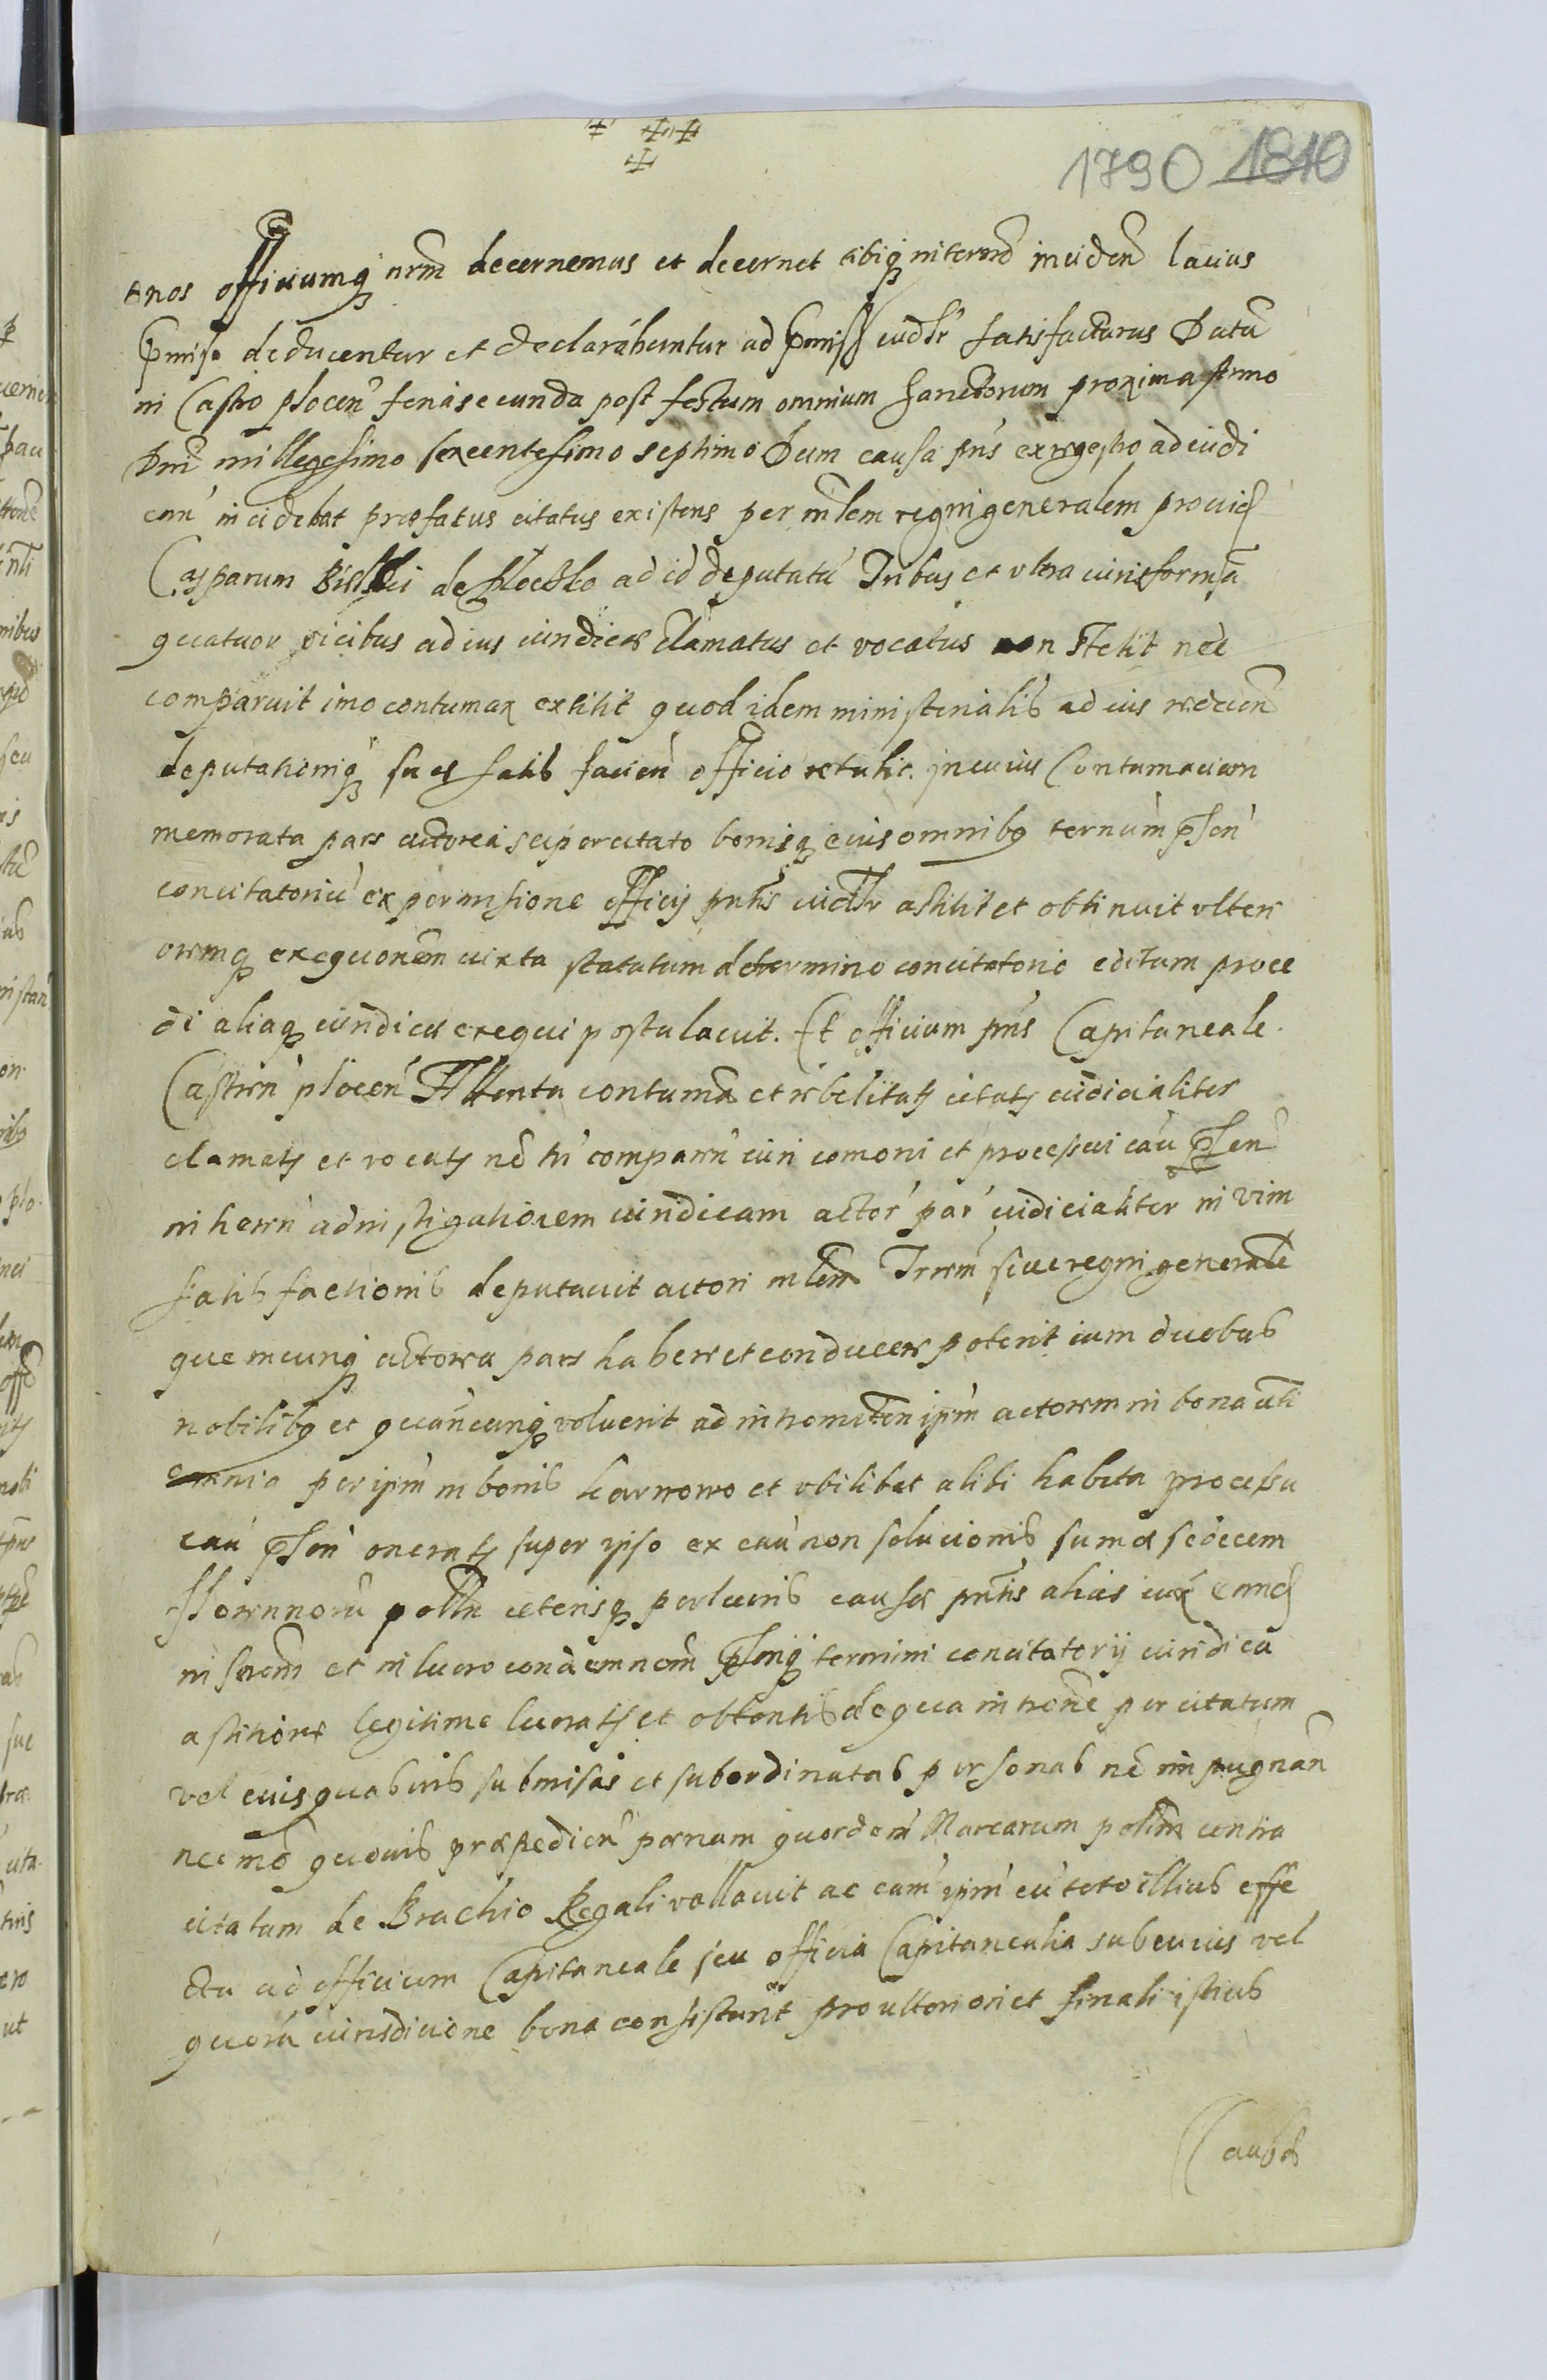 1790 1810
nos officiumq nrm decernemus et decernet tibiq in termo incidén lacius
pmisa deducentur et declarabuntur ad pmiss iudlr satisfacturus Datū
in Castro plocen feria secunda post festum omnium Sanctorum proxima Anno
Dni millegesimo sexcentesimo septimo Dum causa pns ex regestro ad iudi
can incidebat praefatus citatus existens per mlem regni generalem provid
Casparum de Plocsko ad id deputatū Tribus et vltra iuris formā
quatuor vicibus ad ius iuridice clamatus et vocatus non stetit nec
comparuit imo contumax extitit quod idem ministerialis ad ius redeun
deputationiq suae satis facien officio retulit. In cuius Contumaciam
memorata pars actorea super citato bonisq eius omnibq ternum psen
concitatoriū ex permisione officij pntis iudlr astitit et obtinuit vlteri
oremq exequonem iuxta statutum de termino concitatorio editum proce
di aliaq iuridice exequi postulavit. Et officium pns Capitaneale
Castren plocen Attenta contuma et rebelitatj citatj iudicialiter
clamatj et vocatj nec tn comparen iuri comoni et processui cau psen
inheren ad instigationem iuridicam actor par iudicialiter in vim
satis factionis deputavit actori mlem Trrm sive regni generale
quemcunq actorea pars habere et conducere poterit cum duobus
nobilibq et quancunq voluerit ad intromitten ipm actorem in bona
omnia per ipm in bonis et vbilibet alibi habita processu
cau psen oneratj super ipso ex cau non solucionis sumae sedecem
fflorennorū polln ceterisq perlucris causae pntis alias iux
et in lucro condemnom psenq termini concitatorij iuridica
astitione legitime lucratj et obtentis de qua introne per citatum
vel eius quasvis submisas et subordinatas personas nec impugnan
nec mo quovis praepedien poenam quordecim Marcarum polln contra
citatum de Brachio Regali vallavit ac eam ipm cū toto illius effe
ctu ad officium Capitaneale seu officia Capitanealia sub cuius vel
quorū iurisdicione bona consistunt pro ulteriori et finali istius
Causae